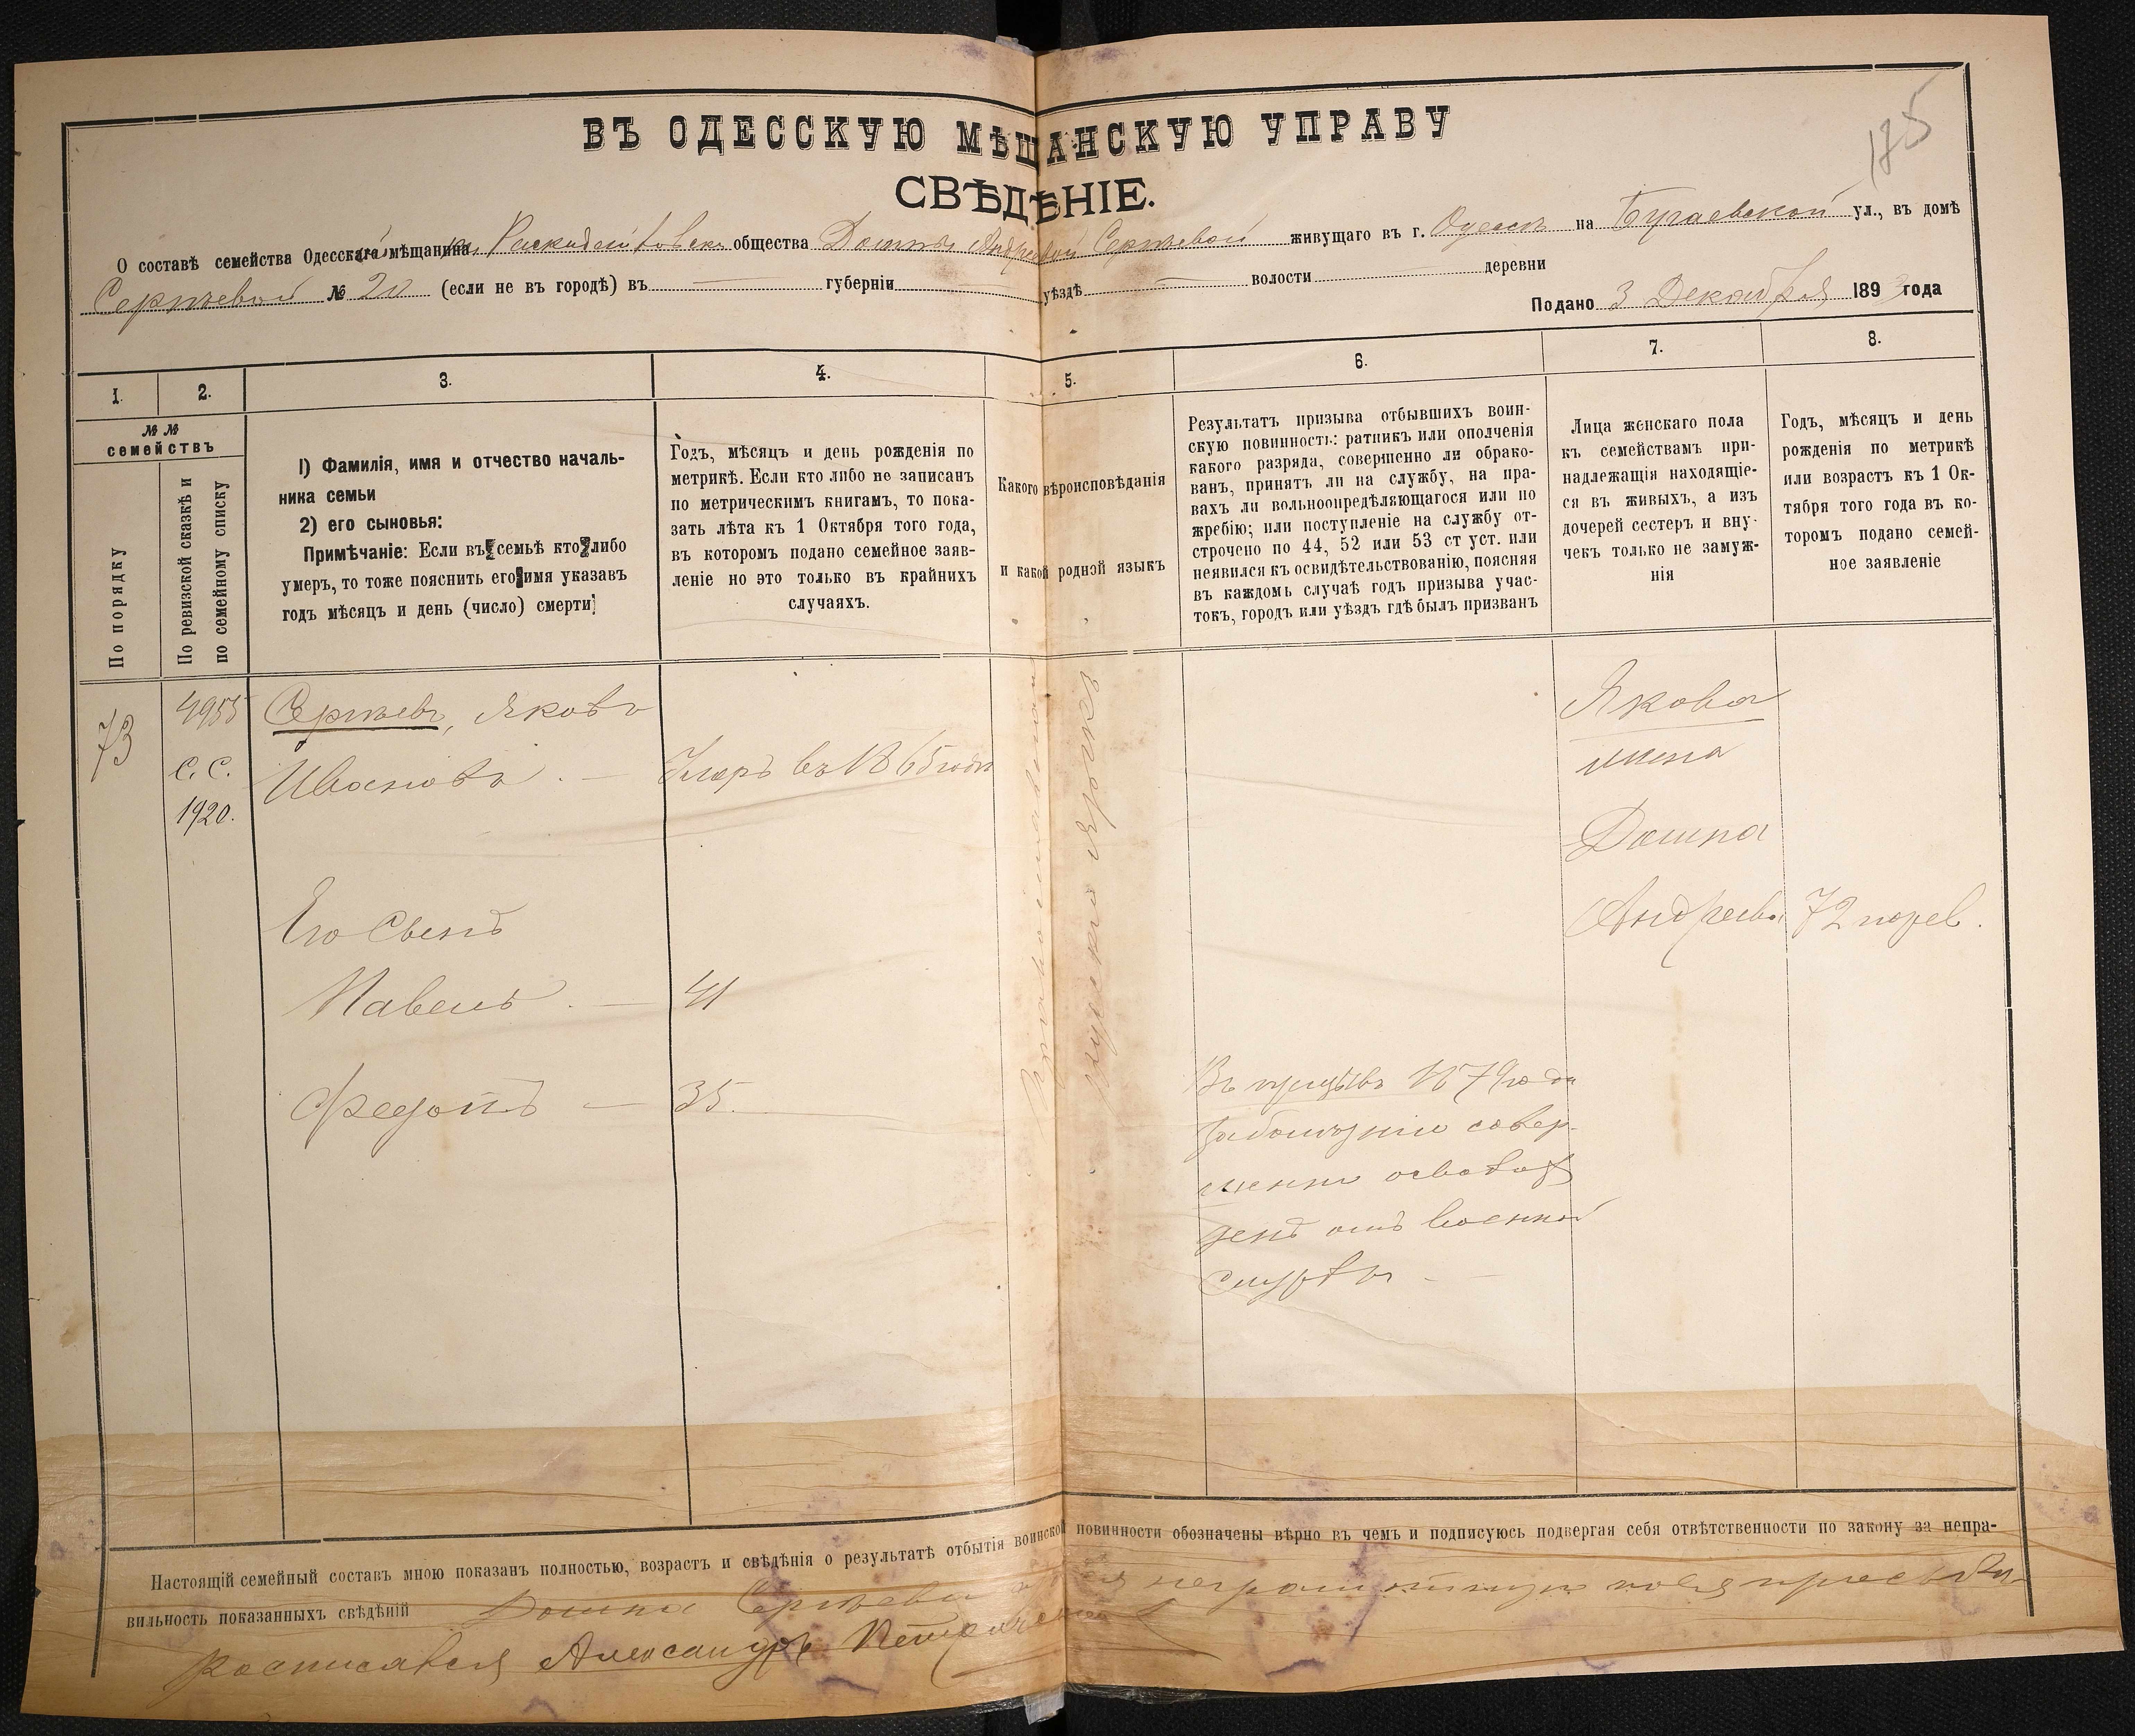 185
ВЪ ОДЕССКУЮ МѢЩАНСКУЮ УПРАВУ
СВѢДѢНІЕ.
О составѣ семейства Одесскаго мѣщанина общества Домны Андреевой Сергѣевой живущаго въ г. Одессѣ на Бугаевской ул., въ домѣ
Сергѣевой № 20 (если не въ городѣ) въ губерніи уѣздѣ волости деревни
Подано 3 Декабря 1893 года
1. 2. 3. 4. 5. 6. 7. 8.
№ № семействъ
По порядку
По ревизской сказкѣ и
по семейному списку
I) Фамилія, имя и отчество началь-
ника семьи
2) его сыновья:
Примѣчаніе: Если въ семьѣ кто либо
умеръ, то тоже пояснить его имя указавъ
годъ мѣсяцъ и день (число) смерти
Годъ, мѣсяцъ и день рожденія по
метрикѣ. Если кто либо не записанъ
по метрическимъ книгамъ, то пока-
зать лѣта къ 1 Октября того года,
въ которомъ подано семейное заяв-
леніе но это только въ крайнихъ
случаяхъ.
Какого вѣроисповѣданія
и какой родной языкъ
Результатъ призыва отбывшихъ воин-
скую повинность: ратникъ или ополченія
какого разряда, совершенно ли обрако-
ванъ, принятъ ли на службу, на пра-
вахъ ли вольноопредѣляющагося или по
жребію; или поступленіе на службу от-
строчено по 44, 52 или 53 ст уст. или
неявился къ освидѣтельствованію, поясняя
въ каждомъ случаѣ годъ призыва учас-
токъ, городъ или уѣздъ гдѣ былъ призванъ
Лица женскаго пола
къ семействамъ при-
надлежащія находящіе-
ся въ живыхъ, а изъ
дочерей сестеръ и вну-
чекъ только не замуж-
нія
Годъ, мѣсяцъ и день
рожденія по метрикѣ
или возрастъ къ 1 Ок-
тября того года въ ко-
торомъ подано семей-
ное заявленіе
73
4955
С. С.
1920.
Сергѣевъ, Яковъ
Ивановъ. —
Умеръ въ 1865 году
Его Сынъ
Павелъ. — 41
Федотъ — 35.
Православная
Русскій языкъ
Въ призывѣ 1879 года
совер-
шенно освобож
денъ отъ военной
службы —
Якова
жена
Домна
Андреева 72
Настоящій семейный составъ мною показанъ полностью, возрастъ и свѣдѣнія о результатѣ отбытія воинской повинности обозначены вѣрно въ чемъ и подписуюсь подвергая себя отвѣтственности по закону за непра-
вильность показанныхъ свѣдѣній Домна Сергѣева
росписався Александръ